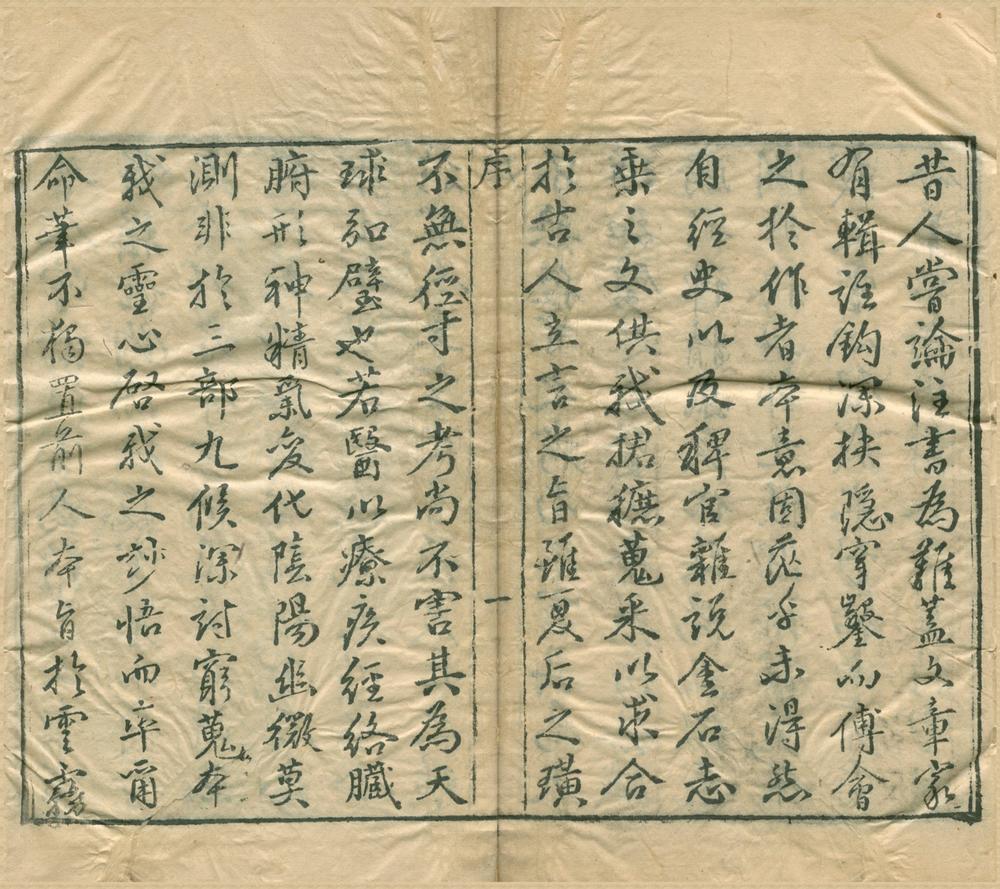 昔人嘗論注書為難蓋文章家
有輯註鈎深抉隱穿鑿而傅會
之扵作者本意固茫乎未得然
自經史以及稗官雜説金石志
乗之文供我捃摭蒐采以求合
扵古人立言之旨雖夏后之璜
序
一
不無徑寸之考尚不害其為天
球和璧也若醫以療疾經絡臟
腑形神精氣變代陰陽幽微莫
測非扵三部九候深討窮蒐本
我之靈心啓我之玅悟而率爾
命筆不獨置前人本旨扵雲霧